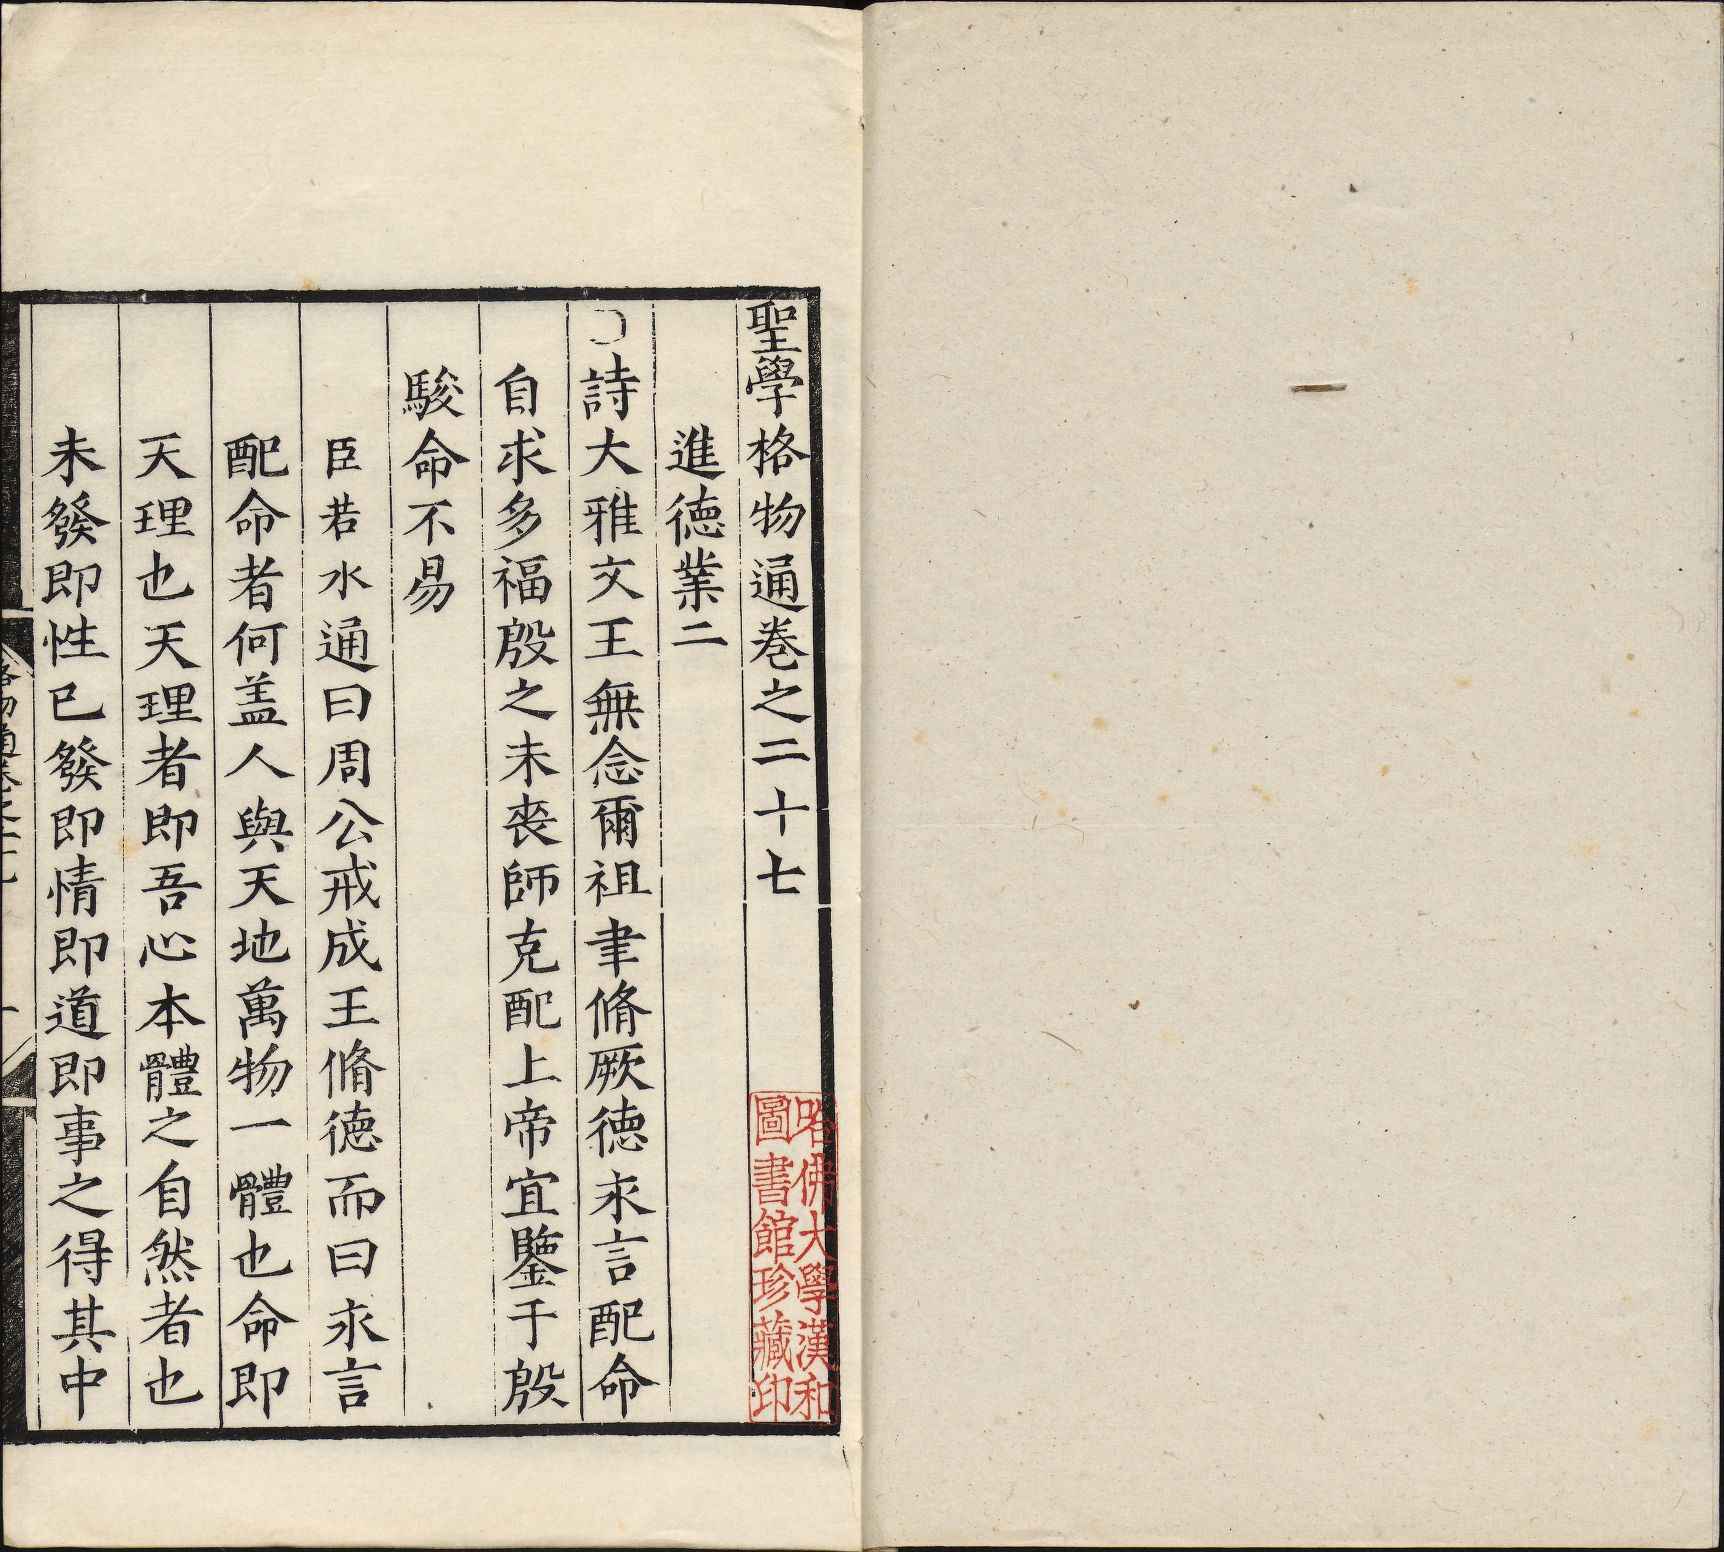 聖學格物通卷之二十七
進德業二
詩大雅文王無念爾祖聿脩厥德永言配命
自求多福殷之未喪師克配上帝宜鑒于殷
駿命不易
臣若水通曰周公戒成王脩德而曰永言
配命者何蓋人與天地萬物一體也命即
天理也天理者即吾心本體之自然者也
未發即性已發即情即道即事之得其中
哈佛大學漢和
圖書館珍藏印